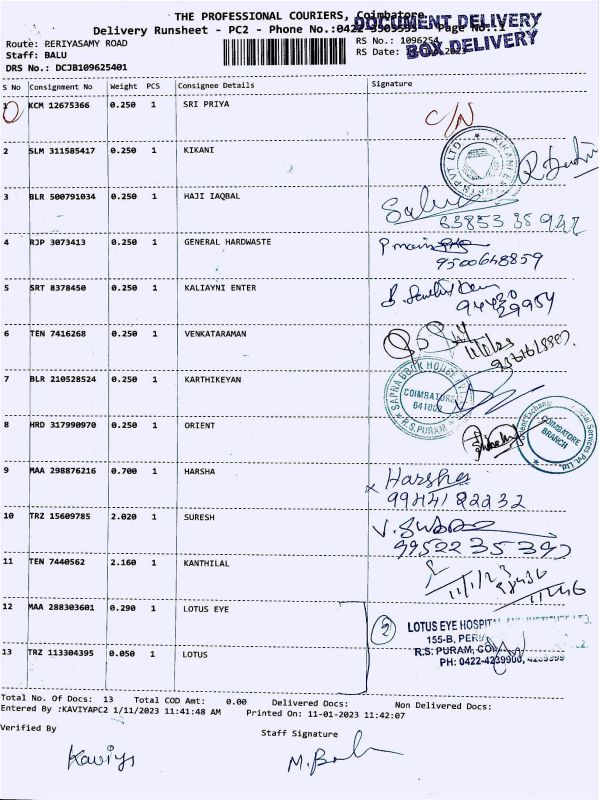 THE PROFESSIONAL COURIERS, Coimbatore
DOCUMENT DELIVERY
Delivery Runsheet - PC2 - Phone No.:0422 Page No.:1
BOX DELIVERY
Route: RERIYASAMY ROAD
RS No.: 1096254
Staff: BALU
RS Date:
DRS No.: DCJB109625401
S No Consignment No Weight PCS Consignee Details Signature
1 KCM 12675366 0.250 1 SRI PRIYA C/N
2 SLM 311585417 0.250 1 KIKANI
3 BLR 500791034 0.250 1 HAJI IAQBAL
4 RJP 3073413 0.250 1 GENERAL HARDWASTE
9500648859
5 SRT 8378450 0.250 1 KALIAYNI ENTER
6 TEN 7416268 0.250 1 VENKATARAMAN
7 BLR 210528524 0.250 1 KARTHIKEYAN
SAPNA BOOK HOUSE
COIMBATORE
641002
R.S.PURAM
8 HRD 317990970 0.250 1 ORIENT
COIMBATORE
BRANCH
9 MAA 298876216 0.700 1 HARSHA
Harsha
10 TRZ 15609785 2.020 1 SURESH
11 TEN 7440562 2.160 1 KANTHILAL
11/1/23
12 MAA 288303601 0.290 1 LOTUS EYE
2
LOTUS EYE HOSPITAL
155-B,
R.S. PURAM,
PH: 0422-4239900,
13 TRZ 113304395 0.050 1 LOTUS
Total No. Of Docs: 13 Total COD Amt: 0.00 Delivered Docs: Non Delivered Docs:
Entered By :KAVIYAPC2 1/11/2023 11:41:48 AM Printed On: 11-01-2023 11:42:07
Verified By
Staff Signature
Kaviya
M. Balu